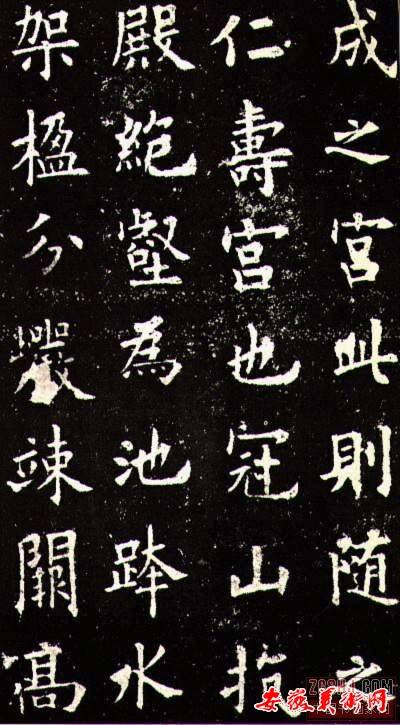 成之宮此則随之
仁壽宮也冠山抗
殿絶壑為池跨水
架楹分巖竦闕髙
安徽美术网